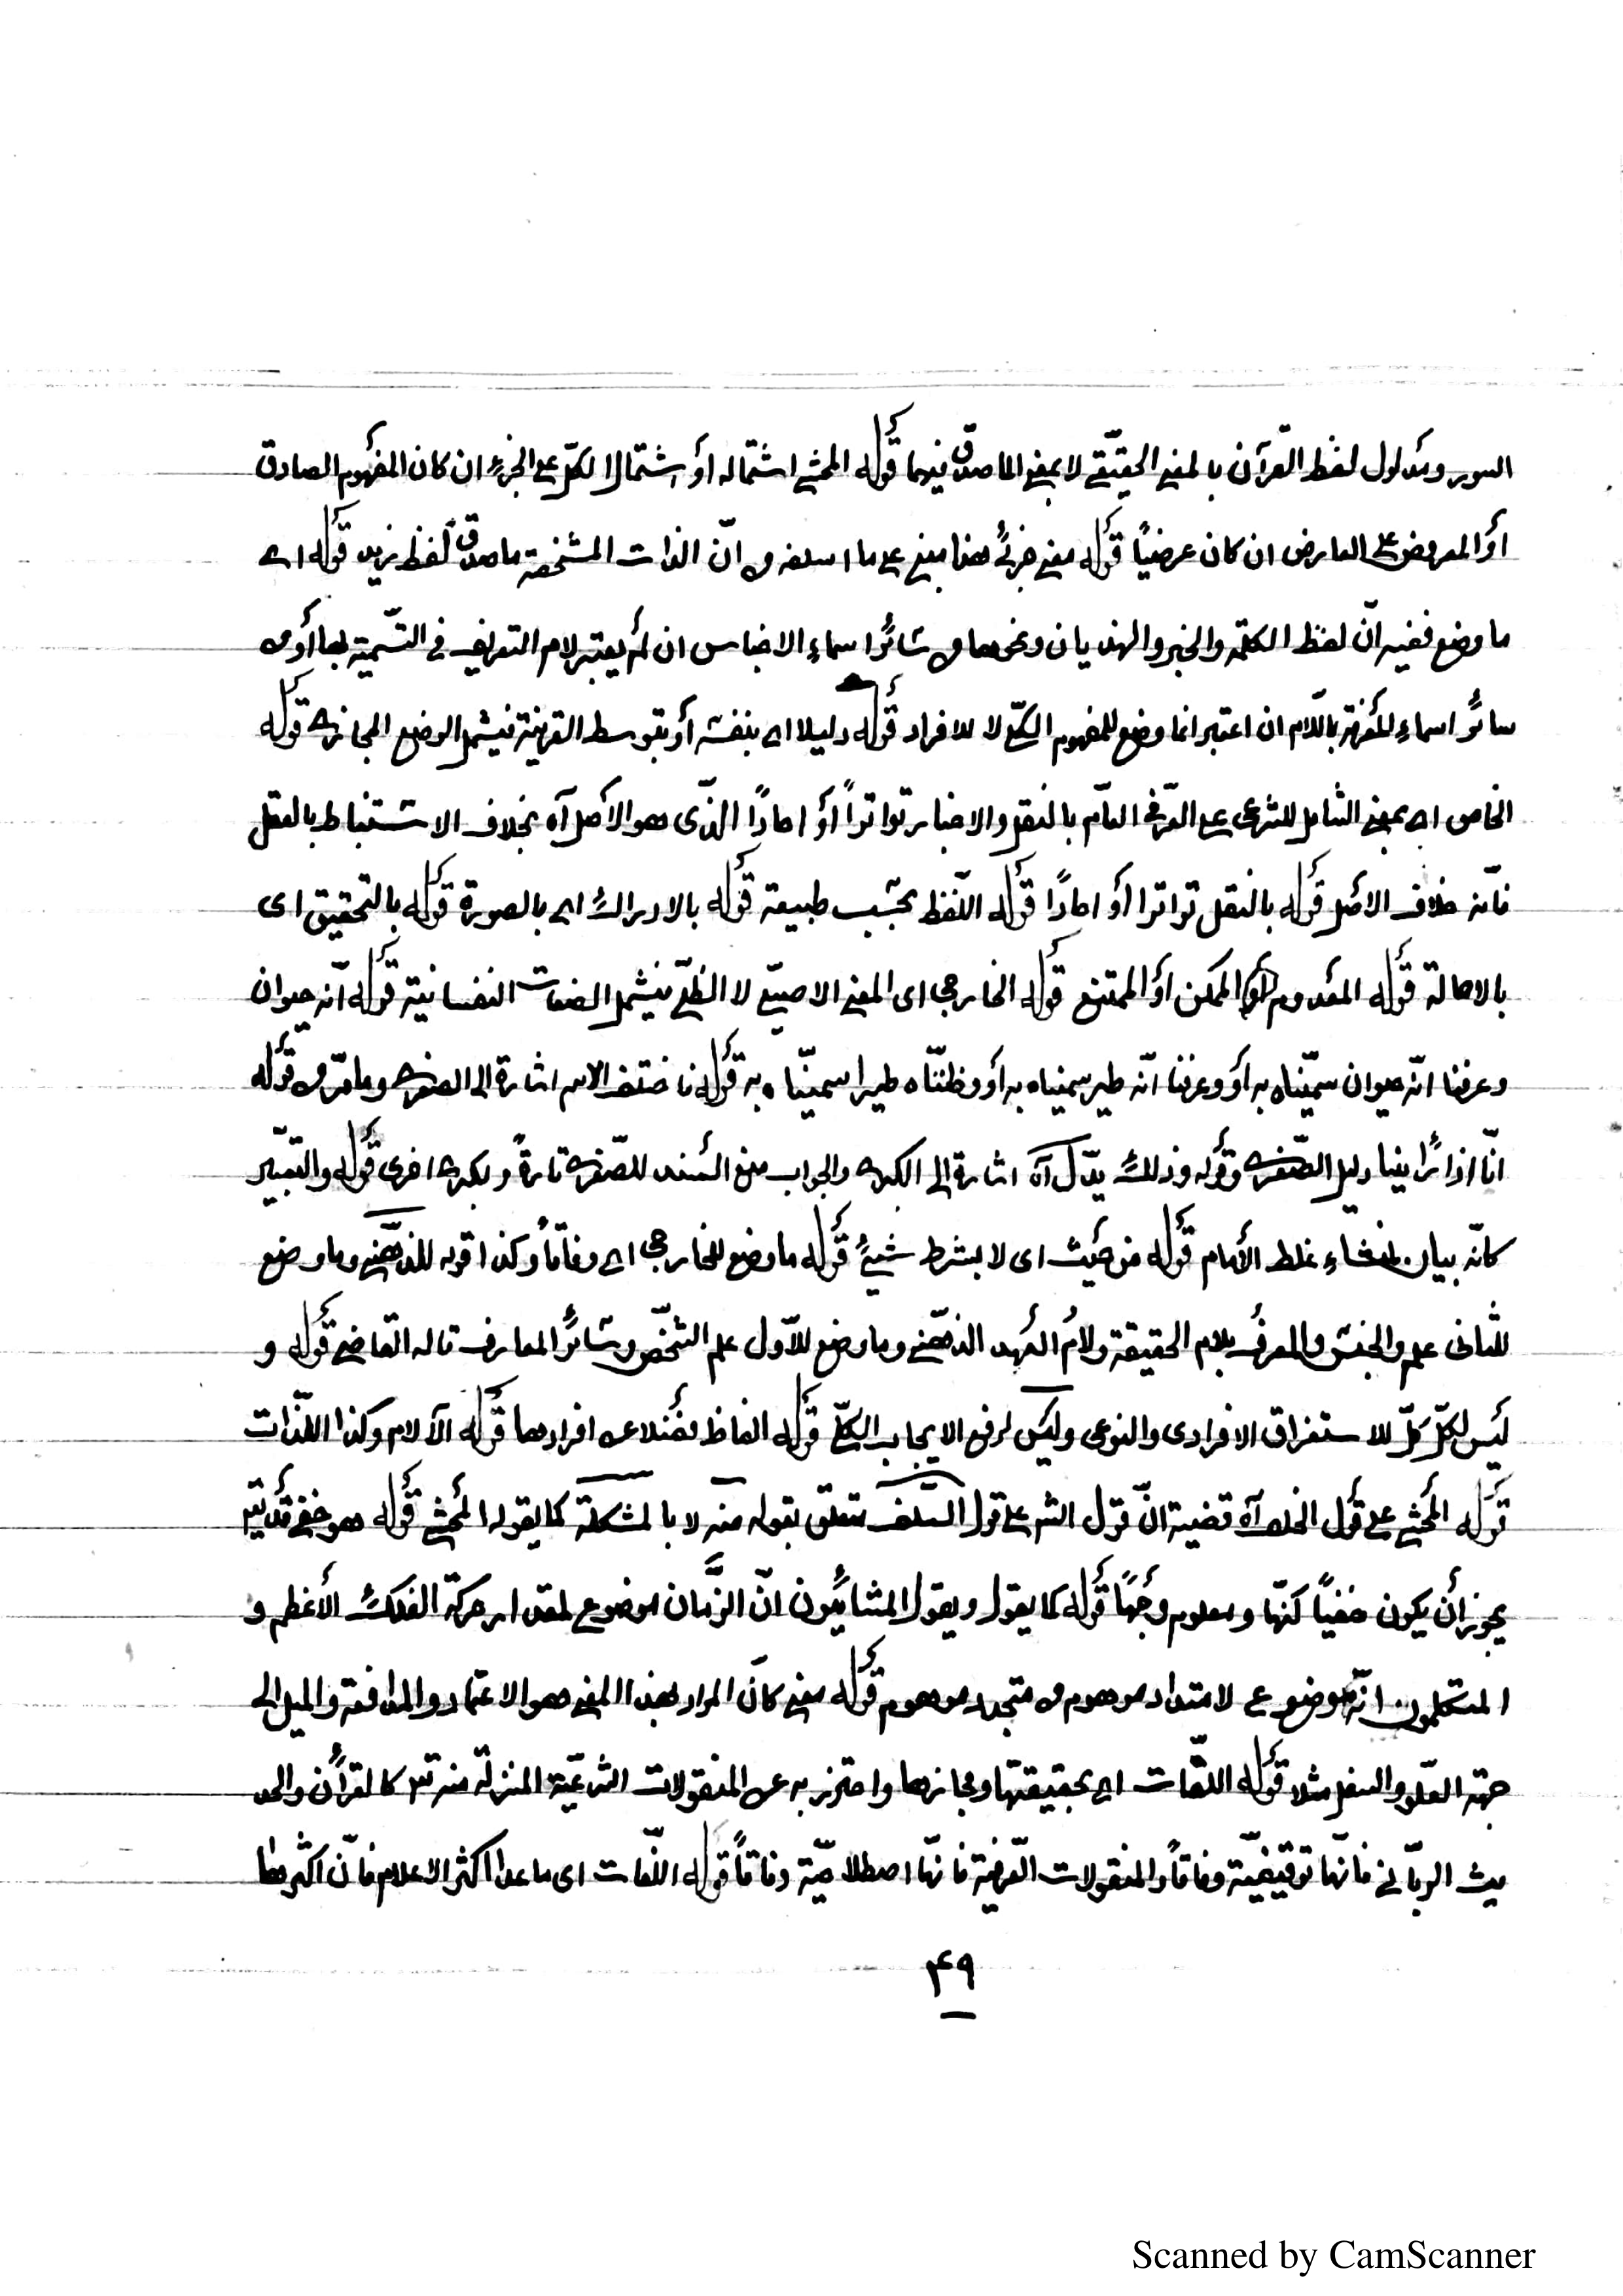 السور ومدلول لفظ القرآن بالمعنى الحقيقي لا بمعنى الماصدق فيهما قوله المحشي اشتماله أو اشتمال الكل على الجزء ان كان المفهوم الصادق
أو المعروض على العارض ان كان عرضياً قوله معنى جزئي هذا مبني على ما اسلفه من انّ الذات المشخصة ماصدق لفظ زيد قوله اى
ما وضع ففيه انّ لفظ الكلمة والخبر والهذيان ونحوها من سائر اسماء الاجناس ان لم يعتبر لام التعريف في التسمية بها أو من
سائر اسماء المعرفة باللام ان اعتبر انما وضع للمفهوم الكلّي لا للافراد قوله دليلا اى بنفسه أو بتوسط القرينة فيشمل الوضع المجازى قوله
الخاص اى بمعنى الشامل للشرعى على العرفى العام بالنقل والاخبار تواتراً أو احاداً الذّى هو الاصل آه بخلاف الاستنباط بالعقل
فانّه خلاف الاصل قوله بالنقل تواترا أو احاداً قوله اللّفظ بحسب طبيعته قوله بالادراك اى بالصورة قوله بالتحقيق اى
بالاصالة قوله المعدوم أو الممكن أو الممتنع قوله الخارجى اى المعنى الاصيلّ لا الظلّي فيشمل الصفات النفسانية قوله انّه حيوان
وعرفنا انّه حيوان سمّيناه به أو وعرفنا انّه طير سميناه به أو وظننّاه طيرا سمينّاه به قوله فاختلف الاسم اشارة الى الصغرى وما مرّ من قوله
انّا اذا رأينا دليل الصّغرى وقوله وذلك يدّل آه اشارة الى الكبرى والجواب منع السند للصّغرى تارةً وللكبرى اخرى قوله والتعبير
كانّه بيان لمنشاء غلط الأمام قوله من حيث اى لا بشرط شيئ قوله ما وضع للخارجى اى وفاقاً وكذا قوله للذهنى وما وضع
للثانى علم الجنس والمعرف بلام الحقيقة ولام العهد الذهنى وما وضع للأول علم الشخص وسائر المعارف قاله القاضى قوله و
ليس لكلّ كلّ للاستغراق الافرادى والنوعى وليس لرفع الايجاب الكلّي قوله الفاظ فضلا عن افرادها قوله الآلام وكذا اللّذات
قوله المحشي على قول الخلف آه قضيته انّ قول الشم على قول السّلف متعلق بقوله منه لا بالمشكلة كما يقوله المحشي قوله هو خفى قد
يجوز أن يكون خفياً كنّها ومعلوم وجهاً قوله كما يقول ويقول المشائيّون انّ الزّمان موضوع لمقدار حركة الفلك الأعظم و
المتكلّمون انّه موضوع لامتداد موهوم من متجدد موهوم قوله معنى كان المراد بهذا المعنى هو الاعتماد والمدافعة والميل الى
جهة العلّو والسفل مثلا قوله اللّغات اى بحقيقتها ومجازها واحترز به عن المنقولات الشرعيّة المنزلة منه تع كالقرآن والحد
يث الربّانى فانّها توقيفيّة وفاقاً والمنقولات العّرفية فانّها اصطلاحيّة وفاقاً قوله اللّغات اى ماعدا اكثر الاعلام فانّ اكثرها
۴۹
Scanned by CamScanner